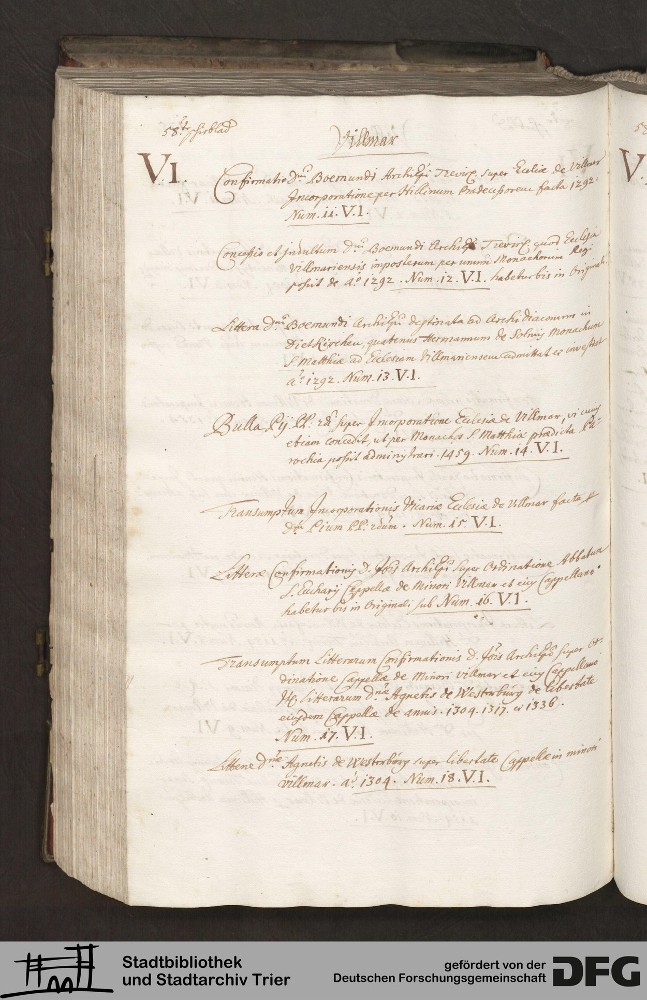 Villmar
V.I.
Confirmatio Dni Boemundi Archiepi Trevir super Ecclīæ de Villmar
Incorporatione per Prædecessorem facta 1292.
Num. 11. V.I.
Concessio et Indultum Dni Boemundi Archiepi Trevir quod Ecclesia
Villmariensis imposterum per unum Monachorum Regi
possit de ao 1292. Num. 12. V.I. habetur bis in Originali
Littera Dni Boemundi Archiepi destinata ad Archidiaconum in
Dietkirchen, quatenus Hermannum de Solmis Monachum
S. Matthiæ ad Ecclesiam Villmariensem admittat et investiat
ao 1292. Num. 13. V.I.
Bulla Pij PP. 2di super Incorporatione Ecclesiæ de Villmar,
etiam concedit, ut per Monachos S. Matthiæ prædicta Pa-
rochia possit administrari. 1459. Num. 14. V.I.
Transumptum Incorporationis Vicariæ Ecclesiæ de Villmar factæ
Pium PP. 2dum. Num. 15. V.I.
Litteræ Confirmationis d. Jois Archiepi super Ordinatione Abbatum
S. Eucharij Cappellæ de Minori Villmar et eius Cappellano
habetur bis in Originali sub Num. 16. V.I.
Transumptum Litterarum Confirmationis d. Jois Archiepi super Or-
dinatione Cappellæ de Minori Villmar et eius Cappellano
It. Litterarum Dnæ Agnetis de Westerburg de libertate
eiusdem Cappellæ de annis. 1304. 1317. et 1336.
Num. 17. V.I.
Litteræ Dnæ Agnetis de Westerburg super libertate Cappellæ in minori
Villmar. ao 1304. Num. 18. V.I.
Stadtbibliothek
und Stadtarchiv Trier
gefördert von der
Deutschen Forschungsgemeinschaft
DFG